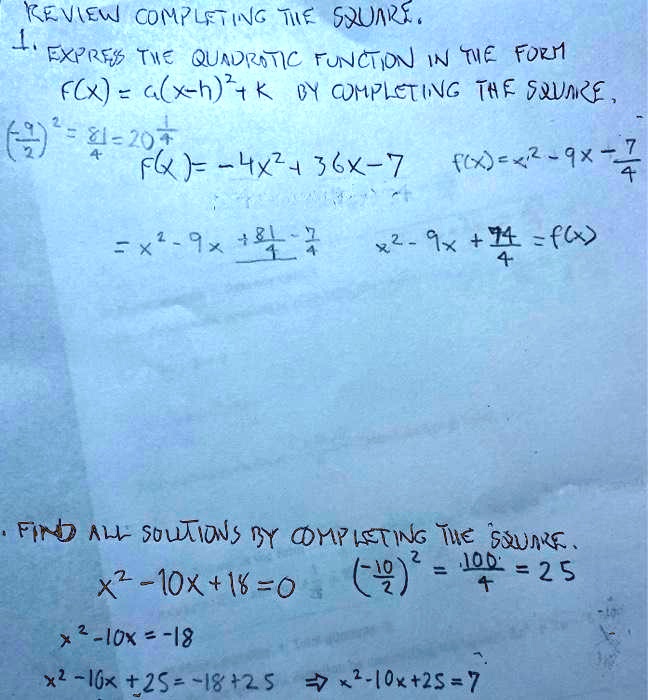 REVIEW COMPLETING THE SQUARE.
1. EXPRESS THE QUADRATIC FUNCTION IN THE FORM
F(X) = a(x-h)²+ K BY COMPLETING THE SQUARE.
(-9/2)² = 81/4 = 20 1/4
F(X) = -4x² + 36x-7
f(x) = x² - 9x - 7/4
= x² - 9x + 81/4 - 7/4
x² - 9x + 74/4 = f(x)
. FIND ALL SOLUTIONS BY COMPLETING THE SQUARE.
x² -10x + 18 = 0 (-10/2)² = 100/4 = 25
x² -10x = -18
x² -10x + 25 = -18+25 ⇒ x²-10x+25 = 7